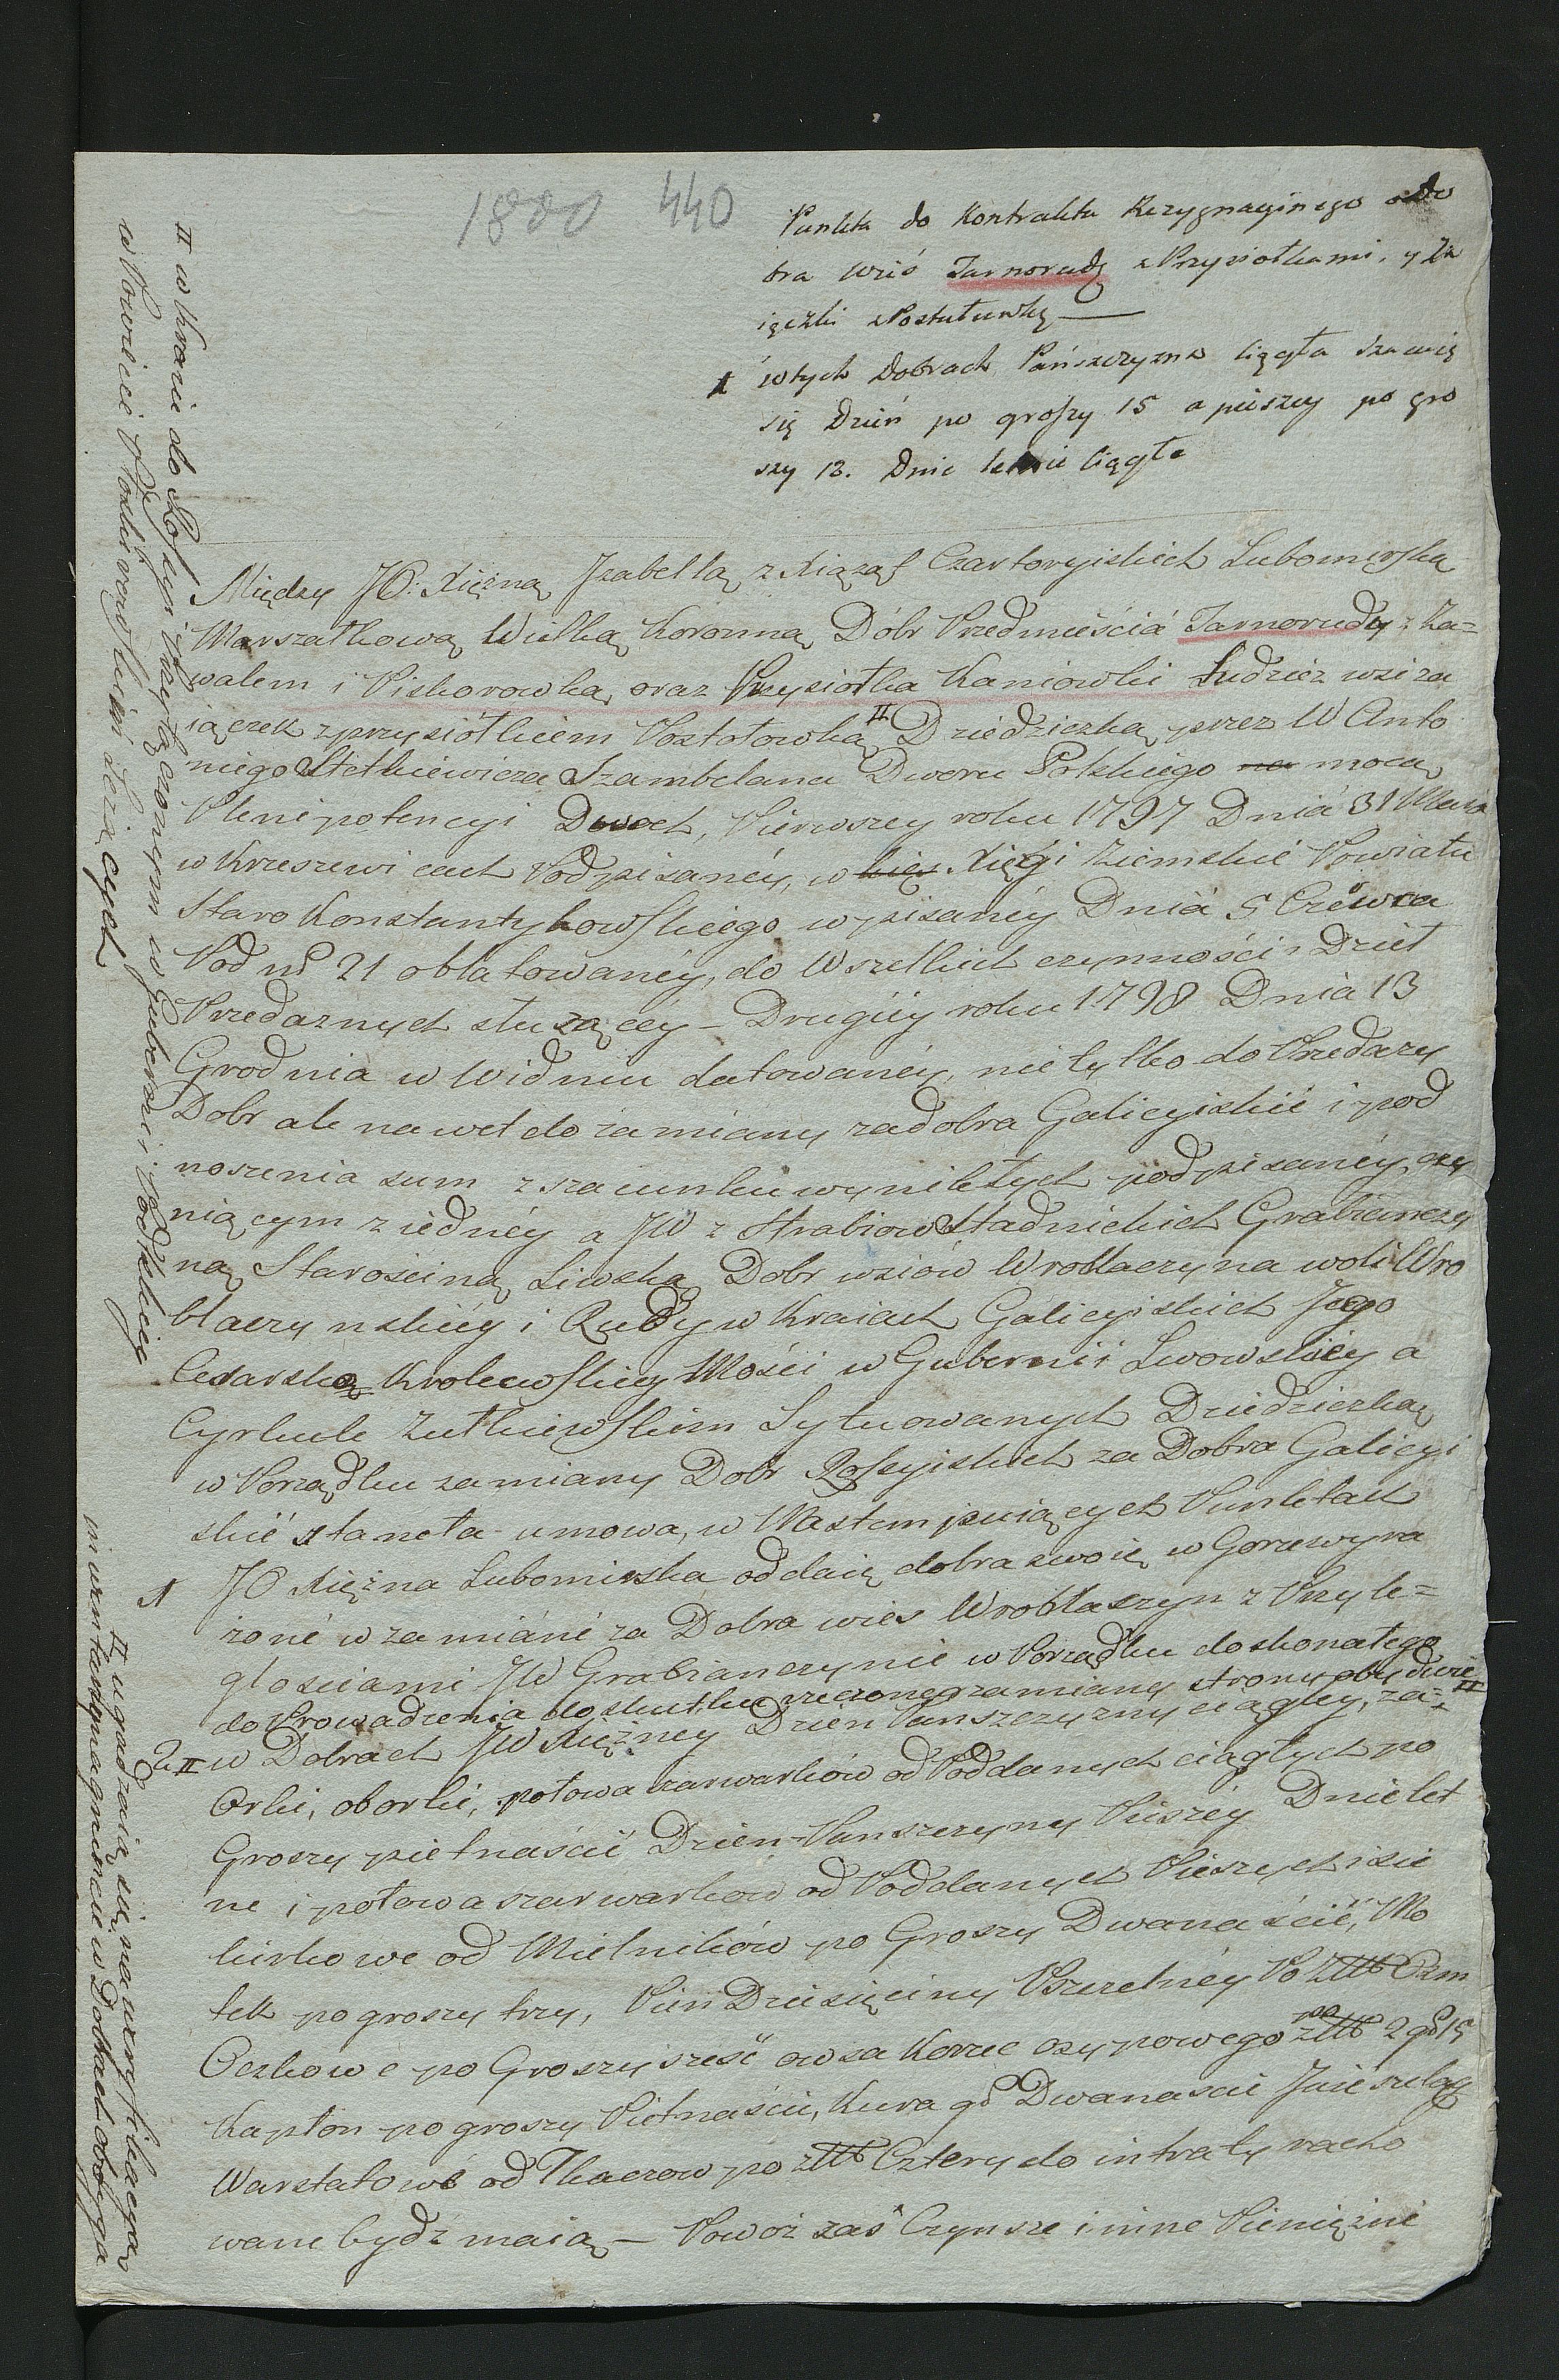 1800 440
Punkta do Kontraktu Rezygnacyinego
bra Wsiś Tarnorudę z Przysiołkami, y Za
iączki z Postułuwką —
1 w tych Dobrach Pańszczyzna ciągła szacuię
się Dzień po groszy 15 a pieszey po gro
szy 12. Dnie letnie ciągłe
Między JO: Xiężną Jzabellą z Xiążąt Czartoryiskich Lubomirską
Marszałkową Wielką Koronną Dóbr Przedmieścia Tarnorudy z Za=
walem i Piskorowką, oraz Przysiołka Kaniowki Tudzież wsi za
iączek z przysiółkiem Postołowką II Dziedziczką przez W Anto
niego Stetkiewicza Szambelana Dworu Polskiego na mocą
Plenipotencyi Dwoch, Pierwszey roku 1797 Dnia 31 Maia
w Krzeszowicach Podpisanéy, w Xięgi Ziemskie Powiatu
Staro Konstantynowskiego wpisanéy Dnia 5 Czerwca
Pod nr 21 oblatowanéy, do Wszelkich czynności i Dzieł
Przedaznych słuzącéy — Drugiéy roku 1798 Dnia 13
Grodnia w Widniu datowanéy, nie tylko do Przedazy
Dobr ale nawet do zamiany za dobra Galicyiskie i pod
noszenia sum z szacunku wynikłych podpisanéy, czy
niącym z iednéy a JW z Hrabiow Stadnickich Grabianczy
ną Starościną Liwską Dobr wsiów Wroblaczyna woli Wro
blaczynskiéy i Rudy w Kraiach Galicyiskich Jego
Cesarsko Krolewskiey Mości w Gubernii Lwowskiéy a
Cyrkule Zułkiewskim Sytuowanych Dziedziczką
w Porządku zamiany Dobr Rossyiskich za Dobra Galicyi
skie stanęła umowa, w Następuiących Punktach
1 JO Xiężna Lubomirska oddaię dobra swoie w Gorze wyra
zoné w zamiáné za Dobra wies Wroblaszyn z Przyle=
głosciami JW Grabianczynie w Porządku doskonałego
do Prowadzenia do skutku rzeczoney zamiany strony obydwie II
2 II w Dobrach JW Xiężney Dzien Panszczyzny ciągłey, za=
Orki, oborki, połowa szarwarków od Poddanych ciągłych po
Groszy pietnaście Dzien Panszczyzny Pieszéy Dnie let
ne i połowa szarwarkow od Poddanych Pieszych i sie
kirkowe od Mielników po Groszy Dwanaście, Mo
tek po groszy trzy, Pień Dziesięciny Pszczelnéy Po Osm
Oczkowe po Groszy sześć owsa Korzec osypowego po 2 gr 15
Kapłon po groszy Pietnaście, Kura gr Dwanascie
Warstatowé od Tkaczow po Cztery do intraty racho
wane bydź maią — Powoz zaś Czynsze i inne Pieniężne
II w Kraiu do Rossyi Przyłączonym w Gubernii Podolskiey
w Powiecie Proskirowskim Leżących
II ugadzaią się na weryfikacyą
inwentarską na gruncie w Dobrach obydwa